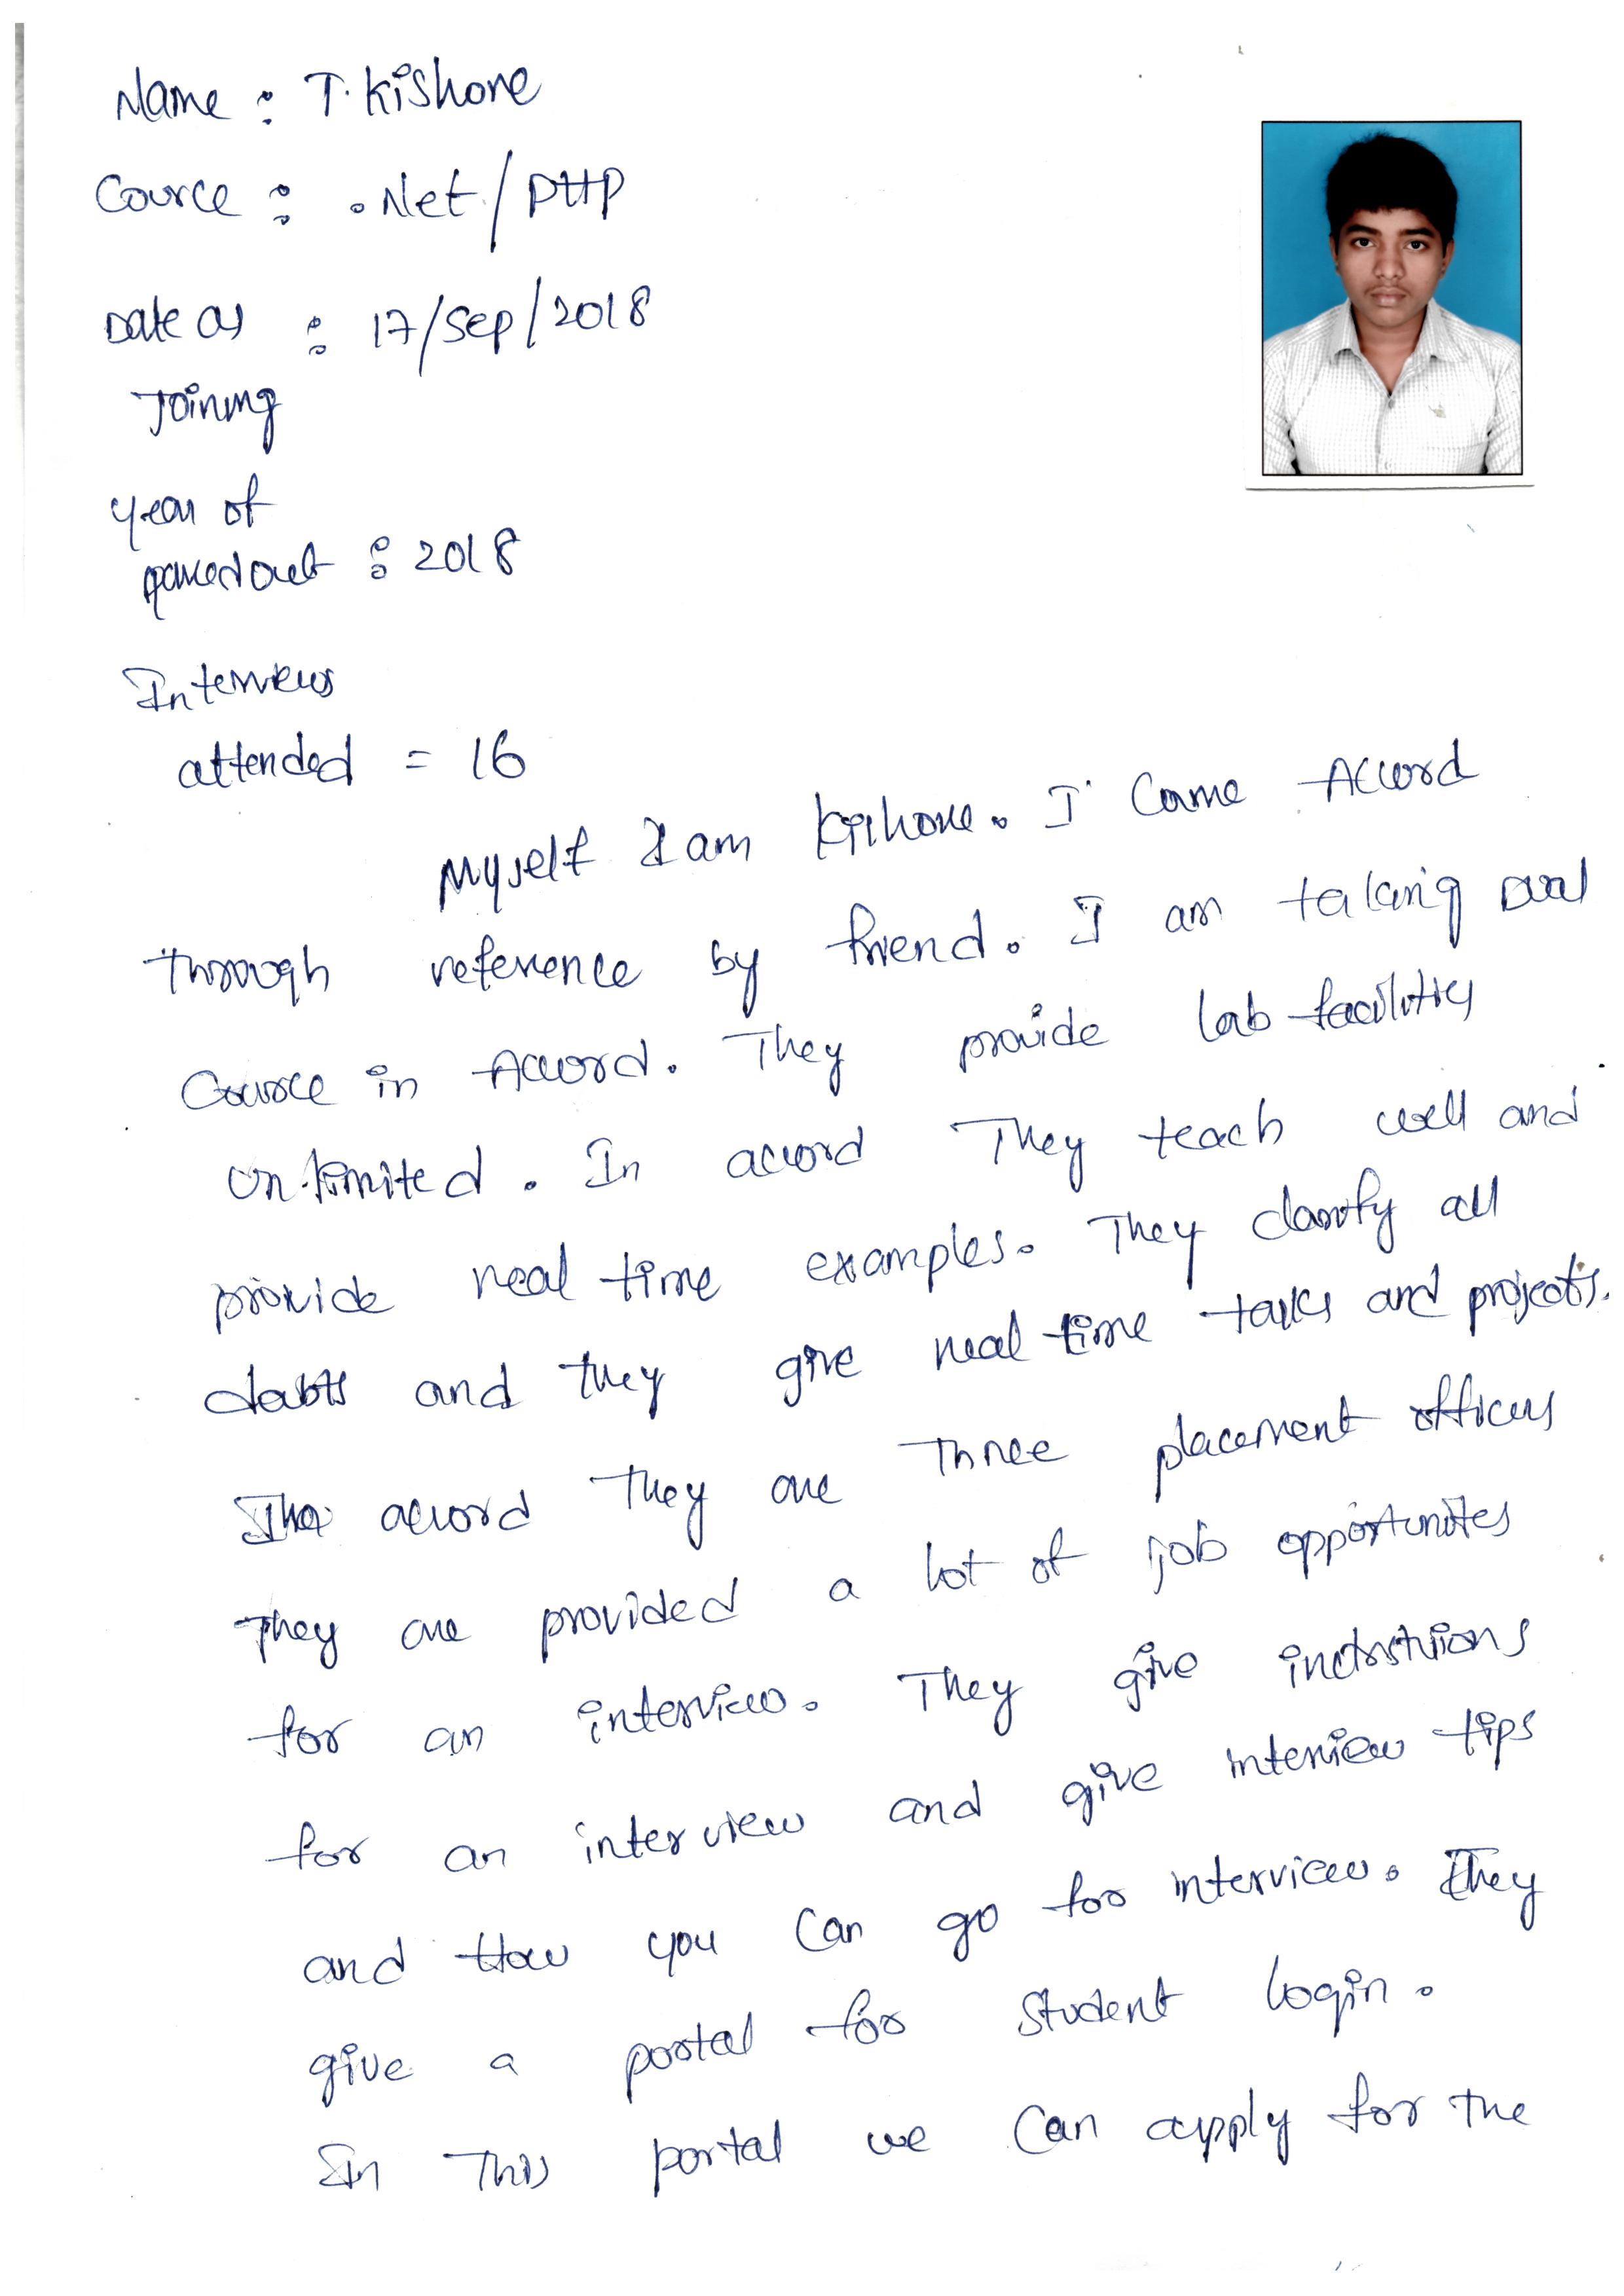 Name : T. Kishore
Cource : .Net/PHP
Date of : 17/Sep/2018
Joining
year of
passed out : 2018
Interviews
attended = 16
Myself I am Kishore. I Came Accord
through reference by friend. I am taking dual
Cource in Accord. They provide lab facilities
un-limited. In accord They teach well and
provide real time examples. They clarify all
doubts and they give real time tasks and projects.
The accord They are Three placement officers
They are provided a lot of job opportunites
for an interview. They give
for an interview and give interview tips
and How you Can go for interview. They
give a portal for student login.
In This portal we Can apply for the